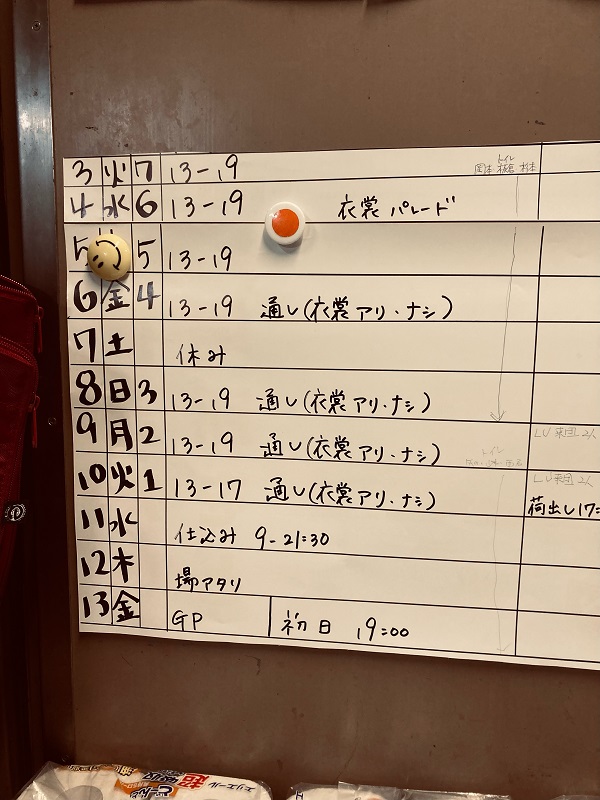 3 火 7 13-19 トイレ
4 水 6 13-19 衣裳パレード
5 5 13-19
6 金 4 13-19 通し(衣裳アリ・ナシ)
7 土 休み
8 日 3 13-19 通し(衣裳アリ・ナシ)
9 月 2 13-19 通し(衣裳アリ・ナシ) トイレ LU 来団 2人
10 火 1 13-17 通し(衣裳アリ・ナシ) LU 来団 2人
荷出し17:
11 水 仕込み 9-21:30
12 木 場アタリ
13 金 GP 初日 19:00
エリエール
超